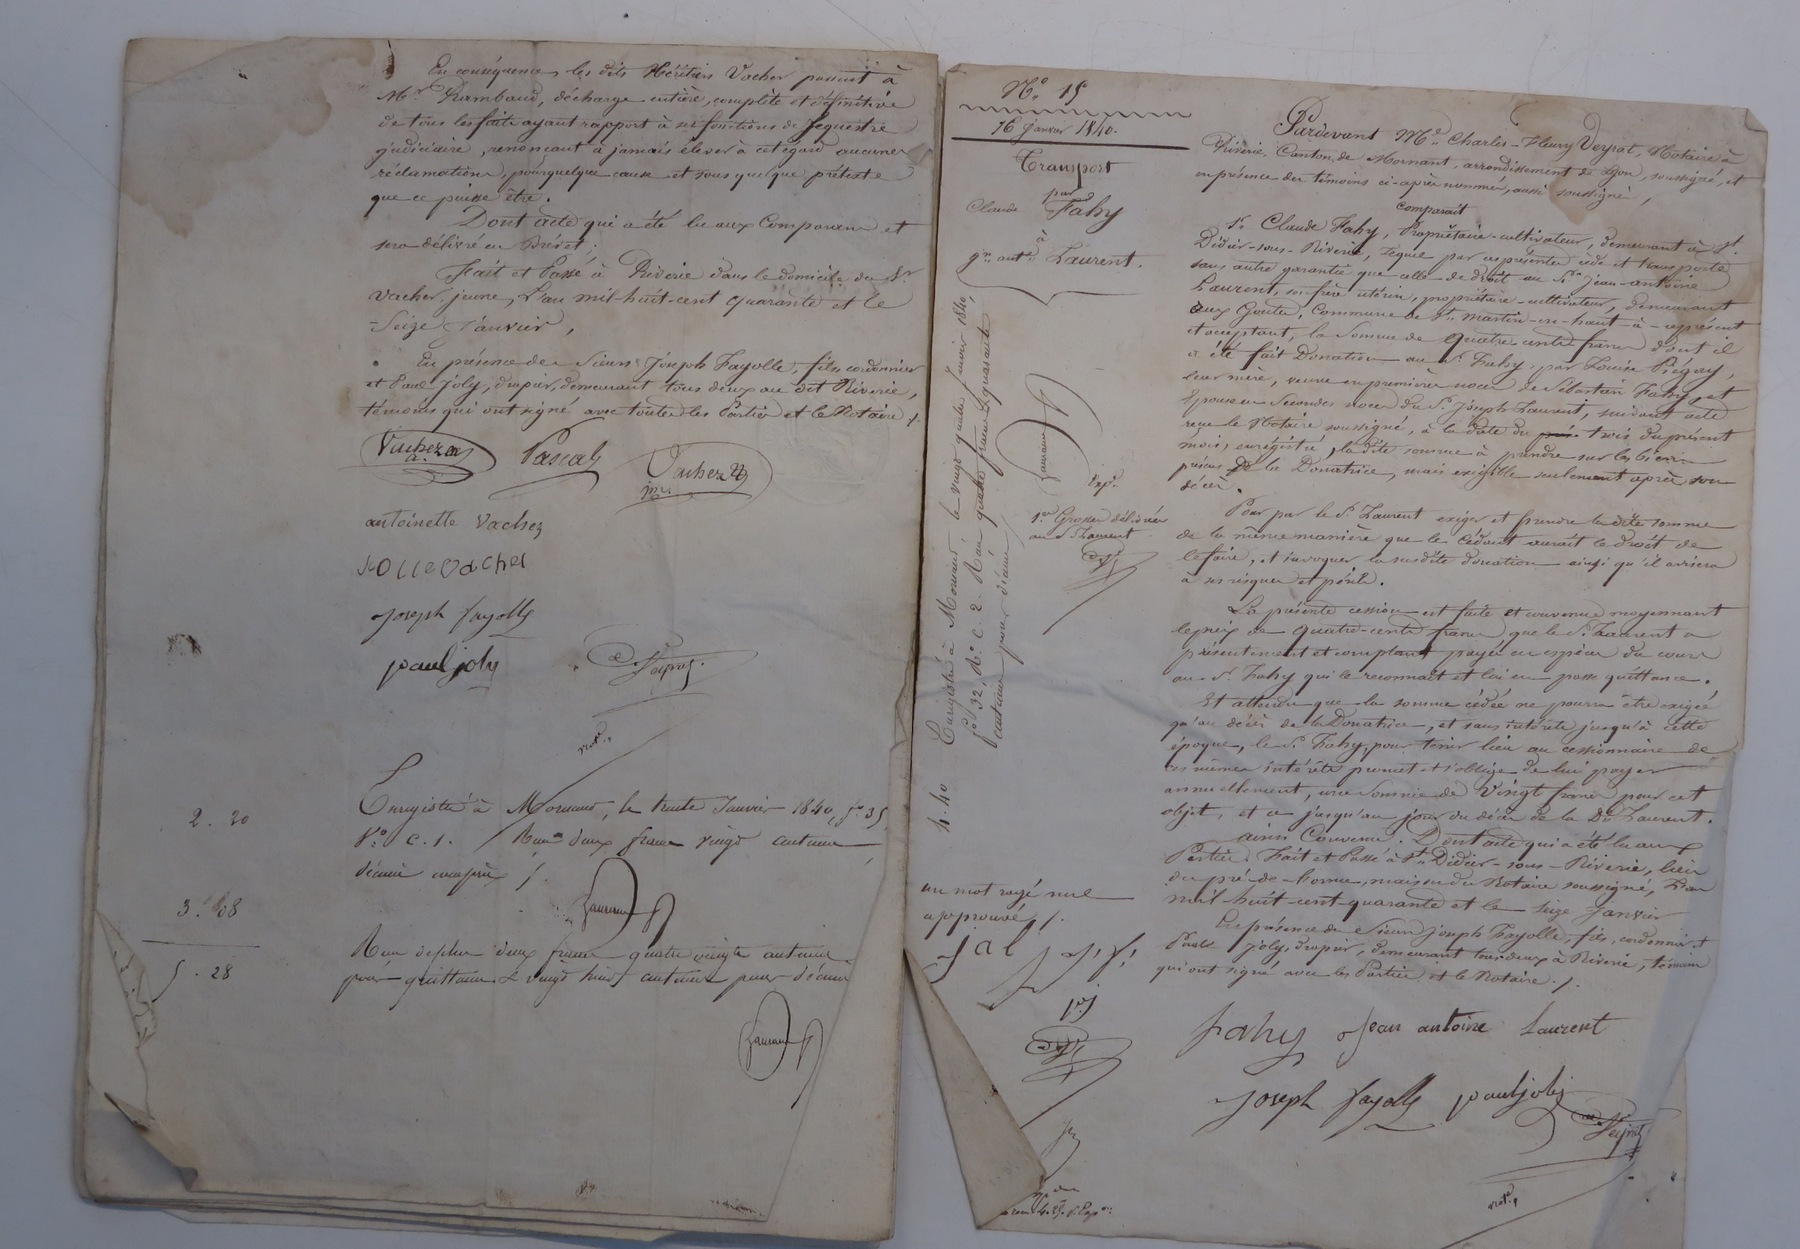 En conséquence, les dits Héritiers Vacher passent à
Mr Rambaud, décharge entière, complète et définitive
de tous les faits ayant rapport à ses fonctions de séquestre
judiciaire, renoncant à jamais élever à cet égard aucune
réclamation, pour quelque cause et sous quelque prétexte
que ce puisse être.
Dont acte qui a été lu aux Comparans et
sera délivré en Brévet;
Fait et Passé à Riverie dans le domicile du Sr
Vacher, jeune, L'an mil huit-cent quarante et le
Seize Janvier,
En présence des Sieurs Joseph Fayolle, fils, cordonnier
et Paul Joly, drapier, demeurant tous deux au dit Riverie,
témoins qui ont signé avec toutes les Parties et le Notaire /.
Vachez a
Pascal
Vachez
jne
antoinette Vachez
Joseph Fayolle
paul joly
Veyrat
not.
2. 20
Enregistré à Mornant, le trente Janvier 1840, fo 35
Vo c. 1. Reçu deux francs vingt centimes
décime compris /.
3. 08
5. 28
Reçu de plus deux francs quatre vingts centimes
pour quittance & vingt huit centimes pour décime
No 15
16 Janvier 1840.
Transport
par
Claude Fahy
à
Jn antne Laurent.
Enregistré à Mornant le vingt quatre Janvier 1840,
fo 32, Ro c. 2. Reçu quatre francs quarante
centimes pour décime
4. 40
Exp.
1re Grosse délivrée
au Sr Laurent
un mot rayé nul
approuvé /.
J a l
j. f.
p. j
Pardevant Me Charles-Fleury Veyrat, Notaire à
Riverie, Canton de Mornant, arrondissement de Lyon, soussigné, et
en présence des témoins ci-après nommés, aussi soussignés,
comparait
Sr Claude Fahy, Propriétaire-cultivateur, demeurant à St
Didier-sous-Riverie, lequel par ces présentes cède et transporte
sans autre garantie que celle de droit au Sr Jean-antoine
Laurent, son frère utérin, propriétaire-cultivateur, demeurant
aux Gouttes, Commune de St Martin-en-haut à ce présent
et acceptant, la Somme de quatre-cents francs dont il
a été fait Donation au Sr Fahy, par Louise
leur mère, veuve en premières noces de Sébastien Fahy, et
Epouse en Secondes noces du Sr Joseph Laurent, suivant acte
reçu le Notaire soussigné, à la date du trois du présent
mois, enregistré, la dite somme à prendre sur les biens
présens de la Donatrice, mais exigible seulement après son
décès.
Pour par le Sr Laurent exiger et prendre la dite somme
de la même manière que le Cédant aurait le droit de
le faire, et invoquer la susdite donation ainsi qu'il avisera
à ses risques et périls.
La présente cession est faite et convenue moyennant
le prix de quatre-cents francs que le Sr Laurent a
présentement et comptant payés en espèces du cours
au Sr Fahy qui le reconnait et lui en passe quittance.
Et attendu que la somme cédée ne pourra être exigée
qu'au décès de la Donatrice, et sans intérêts jusqu'à cette
époque, le Sr Fahy, pour tenir lieu au cessionnaire de
ces mêmes intérêts promet et s'oblige de lui payer
annuellement, une Somme de Vingt francs pour cet
objet, et ce jusqu'au jour du décès de la De Laurent.
ainsi Convenu. Dont acte qui a été lu aux
Parties. Fait et Passé à St Didier-sous-Riverie, lieu
du pré-de-borne, maison du Notaire soussigné, L'an
mil-huit-cent quarante et le seize Janvier
En présence de Sieurs Joseph Fayolle, fils, cordonnier et
Paul Joly, drapier, demeurant tous deux à Riverie, témoins
qui ont signé avec les Parties et le Notaire /.
Fahy Jean antoine Laurent
Joseph Fayolle paul joly
Veyrat
not.